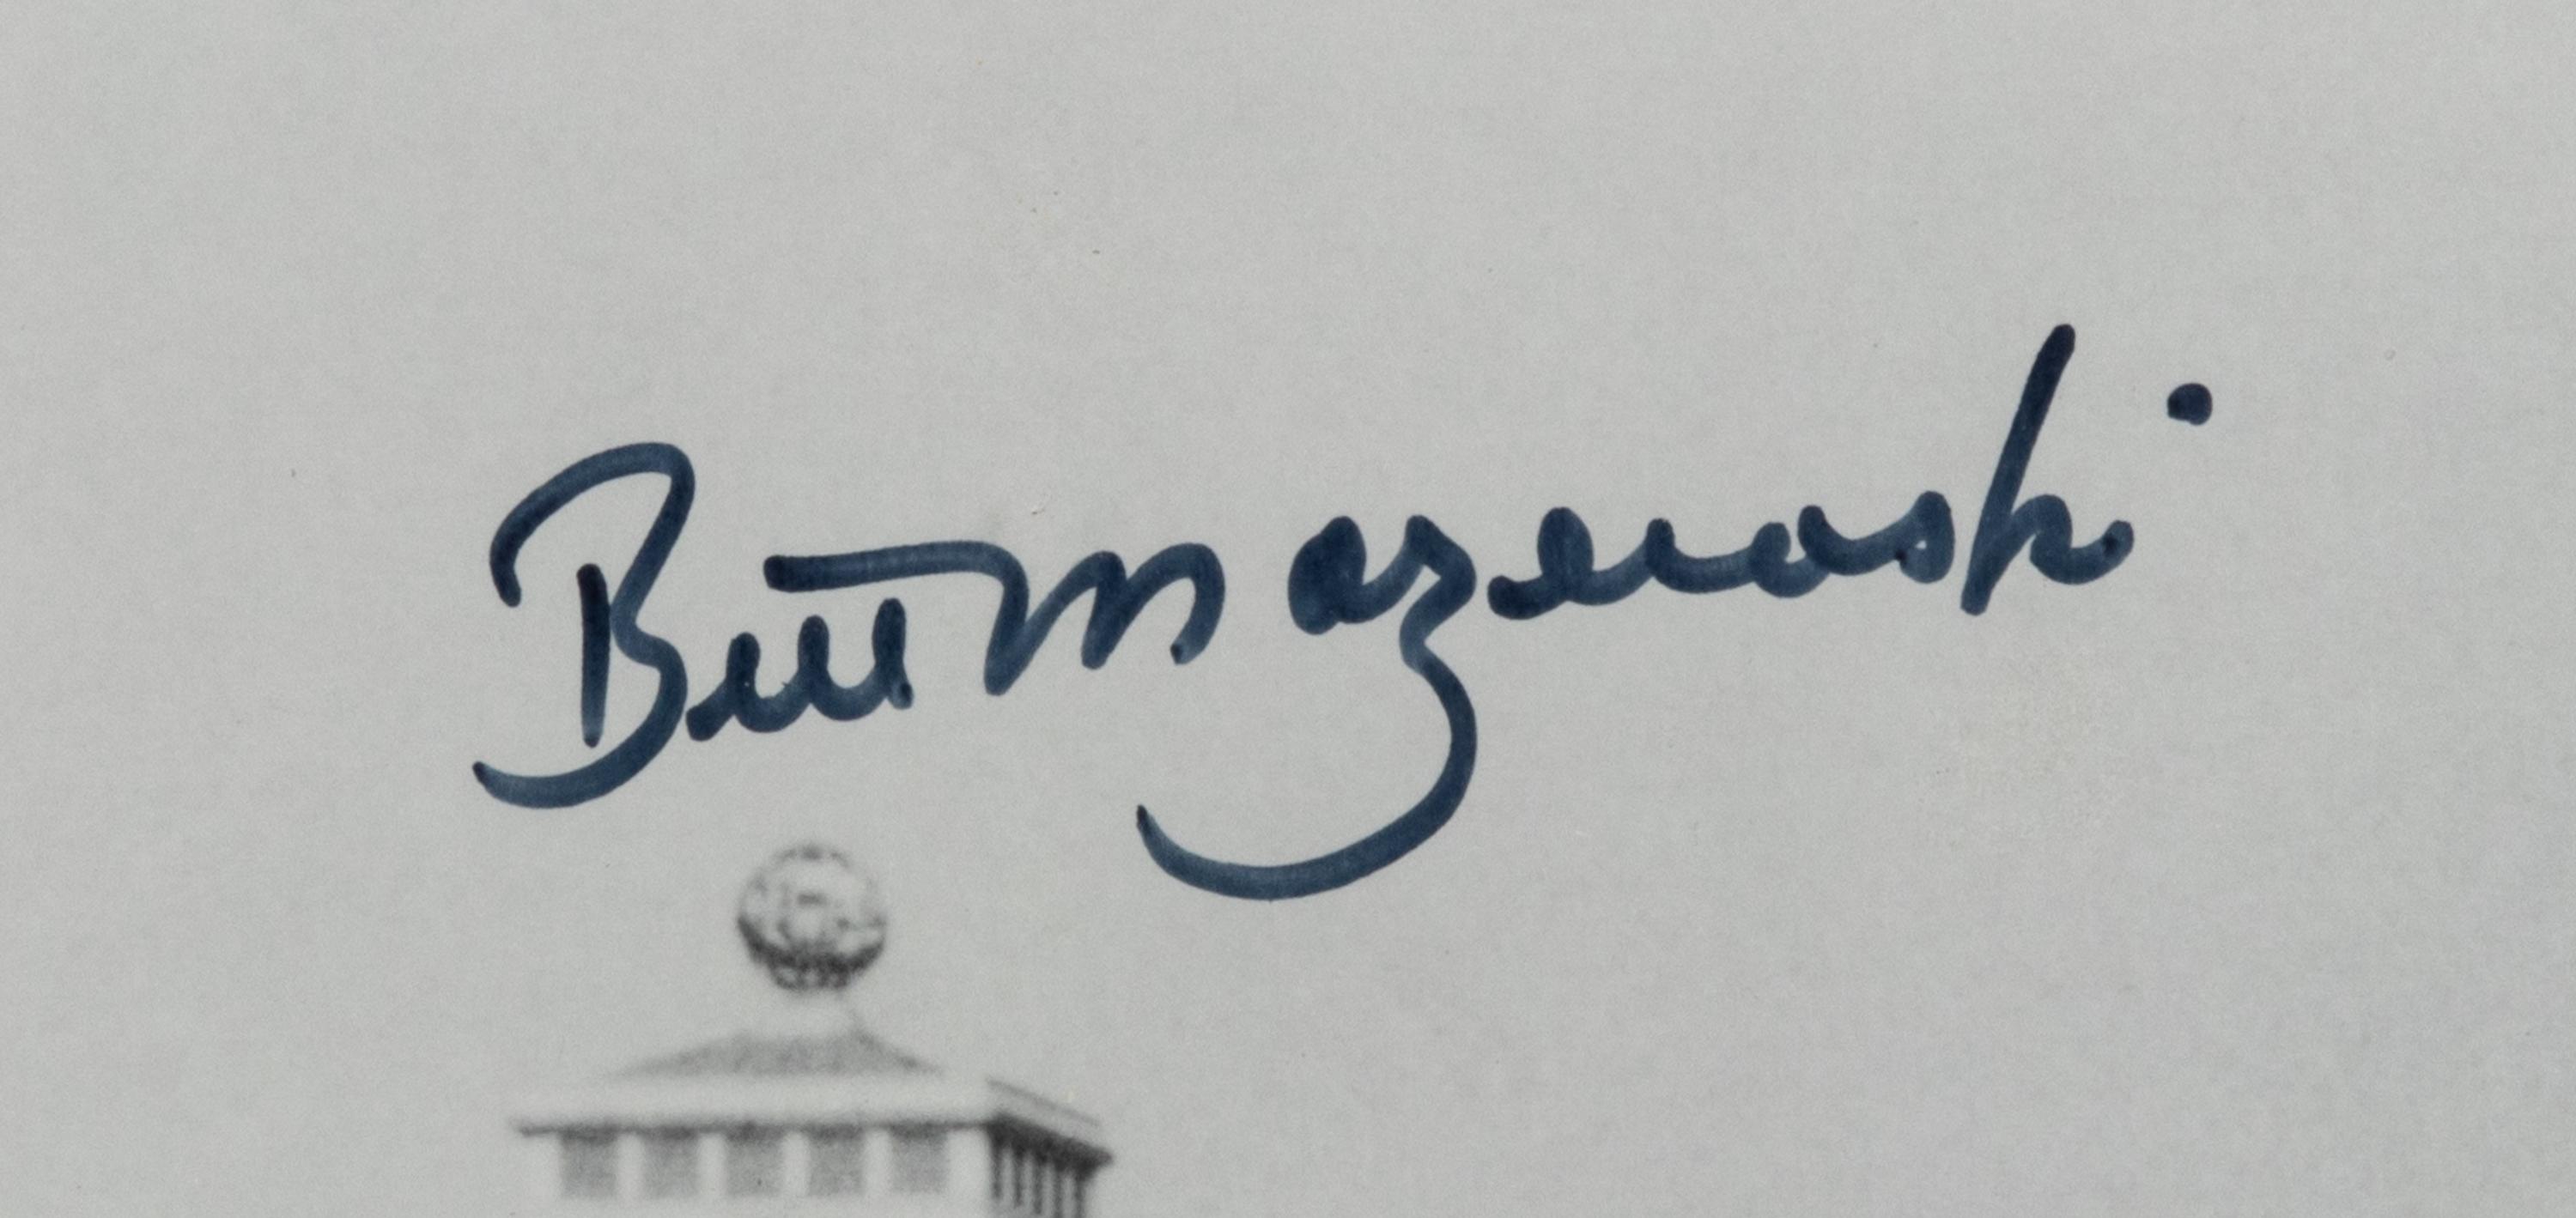 Bill Mazeroski